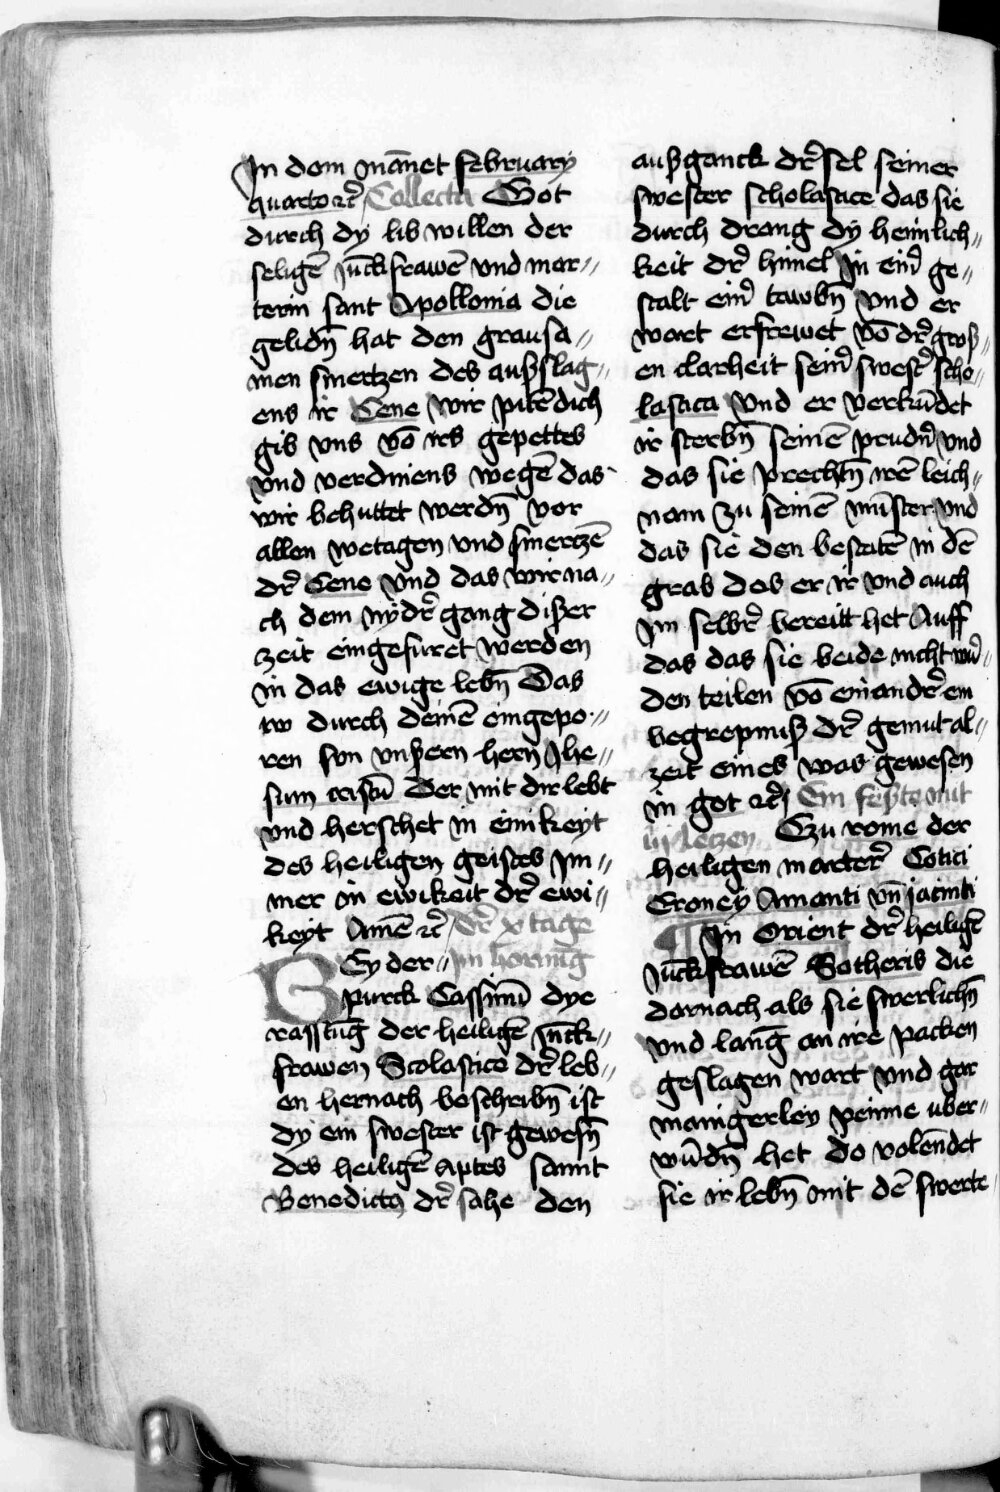 In dem manet february
quarto ꝛc̄ Collecta Got
durch dy lib willen der
seligē Jūckfrawē vnd mar〃
terin sant Apollonia die
gelidn̄ hat den grausa〃
men smertzen des außslag〃
ens ir Cene wir pitē dich
gib vns vō irs gepettes
vnd verdiniens wegē das
wir behuttet werdn̄ vor
allen wetagen vnd smertzē
dr̄ Cene vnd das wir na〃
ch dem nydr̄gang dißer
zeit eingefuret werden
in das ewige lebn̄ Das
durch deinē eingepo〃
ren son vnßern hern̄ Jhe〃
sum cristū Der mit dir lebt
vnd herschet in einikeyt
des heiligen geistes Jm〃
mer in ewikeit dr̄ ewi〃
keyt Amē ꝛc̄ / Dr̄ x tage
BEy der〃 Im hornig
purck Cassinū dye
rasstūg der heiligē Jūck〃
frawen Scolastice dr̄ leb〃
en hernach beschribn̄ ist
dy ein swester ist gewesn̄
des heiligē Aptes sannt
Benedictꝯ dr̄ sahe den
außganck dr̄ sel seiner
swester scholastice das sie
durch drang dy heimlich〃
keit dr̄ himel In ein̄ ge〃
stalt ein̄ tawbn̄ vnd er
wart erfrewet vō dr̄ groß〃
en clarheit sein̄ swest̄ scho〃
lastica Vnd er verkūdet
ir sterbn̄ seinē prudn̄ vnd
das sie prechtn̄ irē leich〃
nam zu seinē mūster vnd
das sie den bestatē in dē
grab das er ir vnd auch
Im selbr̄ bereitt het Auff
das das sie beide nicht wur̄〃
den teilen vō einandr̄ ein
begrepniß dr̄ gemut al〃
zeit eines was gewesen
in got ꝛc̄ Ein fest mit
iij letzen Czu rome der
heiligen marterr̄ Cotici
Eroney Amanti vn̄ jacinti
¶ In Orient dr̄ heiligē
Jūckfrawē Sotheris die
dornach als sie swerlichn̄
vnd lanḡ an ire packen
geslagen wart vnd gar
manigerley peinne vber〃
wūdn̄ het do volēdet
sie ir lebn̄ mit dē swerte